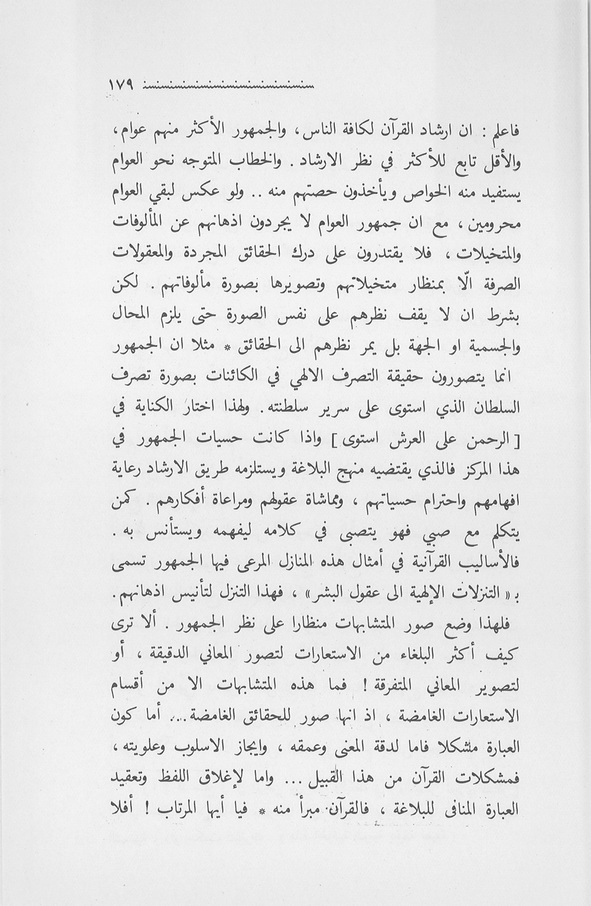 ١٧٩
فاعلم : ان ارشاد القرآن لكافة الناس، والجمهور الأكثر منهم عوام،
والأقل تابع للأكثر في نظر الارشاد . والخطاب المتوجه نحو العوام
يستفيد منه الخواص ويأخذون حصتهم منه .. ولو عكس لبقي العوام
محرومين ، مع ان جمهور العوام لا يجردون اذهانهم عن المألوفات
والمتخيلات ، فلا يقتدرون على درك الحقائق المجردة والمعقولات
الصرفة الّا بمنظار متخيلاتهم وتصويرها بصورة مألوفاتهم . لكن
بشرط ان لا يقف نظرهم على نفس الصورة حتى يلزم المحال
والجسمية او الجهة بل يمر نظرهم الى الحقائق * مثلا ان الجمهور
انما يتصورون حقيقة التصرف الالهي في الكائنات بصورة تصرف
السلطان الذي استوى على سرير سلطنته. ولهذا اختار الكناية في
[ الرحمن على العرش استوى ] واذا كانت حسيات الجمهور في
هذا المركز فالذي يقتضيه منهج البلاغة ويستلزمه طريق الارشاد رعاية
افهامهم واحترام حسياتهم ، ومماشاة عقولهم ومراعاة أفكارهم . كمن
يتكلم مع صبي فهو يتصبى في كلامه ليفهمه ويستأنس به .
فالأساليب القرآنية في أمثال هذه المنازل المرعى فيها الجمهور تسمى
بـ « التنزلات الإلهية الى عقول البشر» ، فهذا التنزل لتأنيس اذهانهم.
فلهذا وضع صور المتشابهات منظارا على نظر الجمهور . ألا ترى
كيف أكثر البلغاء من الاستعارات لتصور المعاني الدقيقة ، أو
لتصوير المعاني المتفرقة ! فما هذه المتشابهات الا من أقسام
الاستعارات الغامضة ، اذ انها صور للحقائق الغامضة... أما كون
العبارة مشكلا فاما لدقة المعنى وعمقه ، وايجاز الاسلوب وعلويته،
فمشكلات القرآن من هذا القبيل ... واما لإغلاق اللفظ وتعقيد
العبارة المنافى للبلاغة ، فالقرآن مبرأ منه * فيا أيها المرتاب ! أفلا